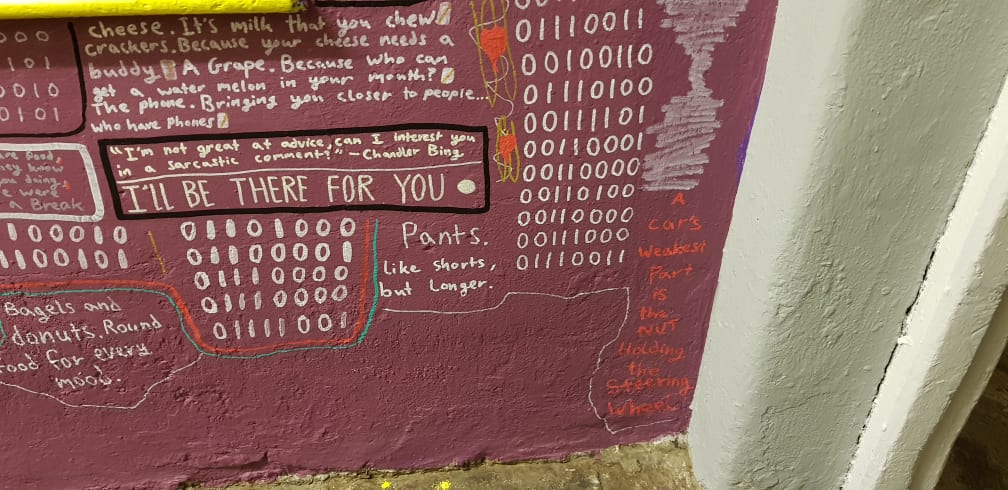 cheese. It's milk that you chew
crackers. Because your cheese needs a
buddy. A Grape. Because who can
get a water melon in your mouth?
The phone. Bringing you closer to people...
who have phones
"I'm not great at advice, can I interest you
in a sarcastic comment?" - Chandler Bing
I'LL BE THERE FOR YOU
are food,
they know
you doing
a Break
100010
1100101
01101000
01100001
01110000
01110000
01111001
Pants.
Like shorts,
but Longer.
Bagels and
donuts. Round
food for every
mood.
01110011
00100110
01110100
00111101
00110001
00110000
00110100
00110000
00111000
00110011
A
car's
Weakest
Part
is
the
NUT
Holding
the
Steering
Wheel